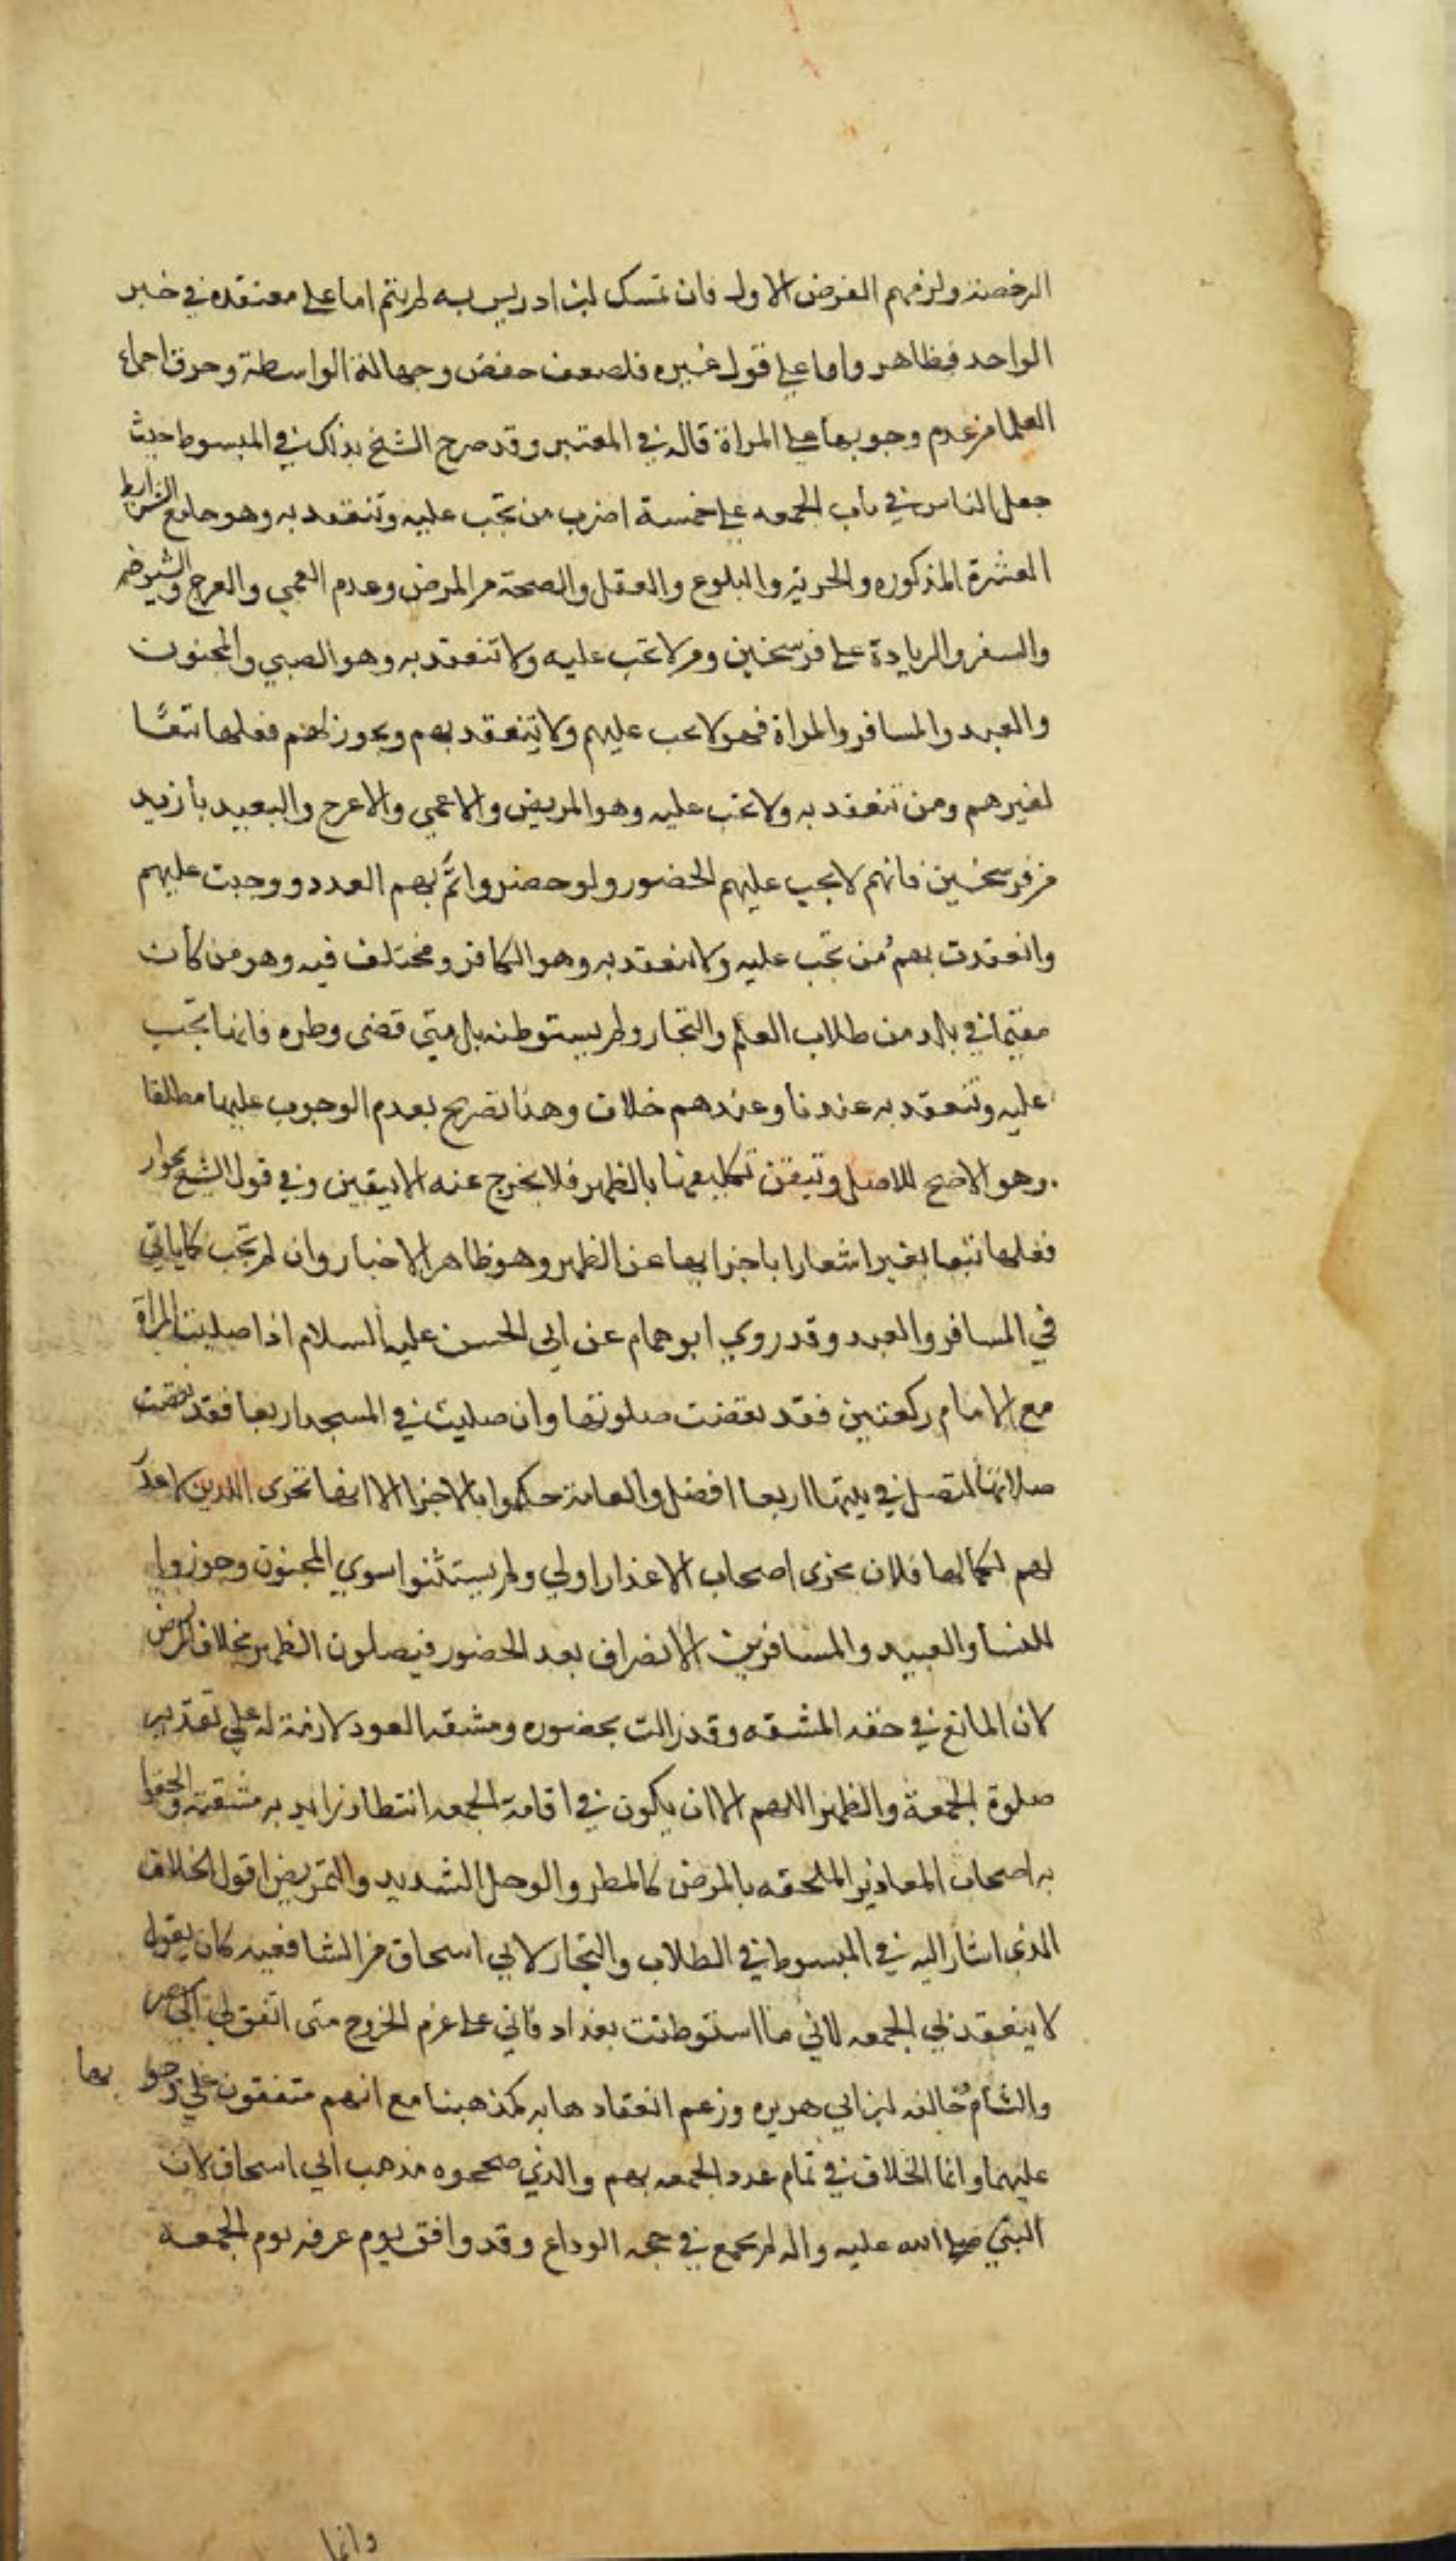 الرخصة ولزمهم الفرض الاول فان تمسك ابن ادريس به لم يتم اما على معتقده في خبر
الواحد فظاهر واما على قول غيره فلضعف حفص وجهالة الواسطة وخرق اجماع
العلما من عدم وجوبها على المراة قاله في المعتبر وقد صرح الشيخ بذلك في المبسوط حيث
جعل الناس في باب الجمعه على خمسة اضرب من تجب عليه وتنعقد به وهو جامع الشرايط
العشرة المذكوره والحرية والبلوغ والعقل والصحة من المرض وعدم العمي والعرج والشيخوخه
والسفر والزيادة على فرسخين ومن لا تجب عليه ولا تنعقد به وهو الصبي والمجنون
والعبد والمسافر والمراة فهو لا تجب عليهم ولا تنعقد بهم ويجوز لهم فعلها تبعًا
لغيرهم ومن تنعقد به ولا تجب عليه وهو المريض والاعمي والاعرج والبعيد بأزيد
من فرسخين فانهم لا يجب عليهم الحضور ولو حضروا تمَّ بهم العدد ووجبت عليهم
وانعقدت بهم من تجب عليه ولا تنعقد به وهو الكافر ومختلف فيه وهو من كان
مقيما في بلد من طلاب العلم والتجار ولم يستوطنه بل متي قضى وطره فانها تجب
عليه وتنعقد به عندنا وعندهم خلاف وهذا تصريح بعدم الوجوب عليها مطلقا
وهو الاصح للاصل وتيقن تكليفها بالظهر فلا يخرج عنه الا بيقين وفي قول الشيخ بجواز
فعلها تبعا بغير اشعارا باجزايها عن الظهر وهو ظاهر الاخبار وان لم تجب كما ياتي
في المسافر والعبد وقد روي ابو همام عن ابي الحسن عليه السلام اذا صليت المراة
مع الامام ركعتين فقد نقضت صلوتها وان صليت في المسجد اربعا فقد نقصت
صلاتها لتصل في بيتها اربعا افضل والعامة حكموا بالاجزا الا انها تجزى الذين لا عذر
لهم لكمالها فلان تجزى اصحاب الاعذار اولي ولم يستثنوا سوي المجنون وجوزوا
للنسا والعبيد والمسافرين الانصراف بعد الحضور فيصلون الظهر بخلاف المريض
لان المانع في حقه المشقه وقد زالت بحضوره ومشقه العود لازمة له على تقدير
صلوة الجمعة والظهر اللهم الا ان يكون في اقامة الجمعه انتظار تزايد به مشقته والحقوا
به اصحاب المعاذير الملحقه بالمرض كالمطر والوحل الشديد والتمريض اقول الخلاف
الذي اشار اليه في المبسوط في الطلاب والتجار لابي اسحاق من الشافعيه كان يقول
لا ينعقد بي الجمعه لاني ما استوطنت بغداد فاني على عزم الخروج متى اتفق لي الى مصر
والشام خالفه ابن ابي هريره وزعم انعقادها به كمذهبنا مع انهم متفقون على وجوبها
عليهما وانما الخلاف في تمام عدد الجمعه بهم والذي صححوه مذهب ابي اسحاق لان
النبي صلى الله عليه واله لم يجمع في حجه الوداع وقد وافق يوم عرفه يوم الجمعه
وانما